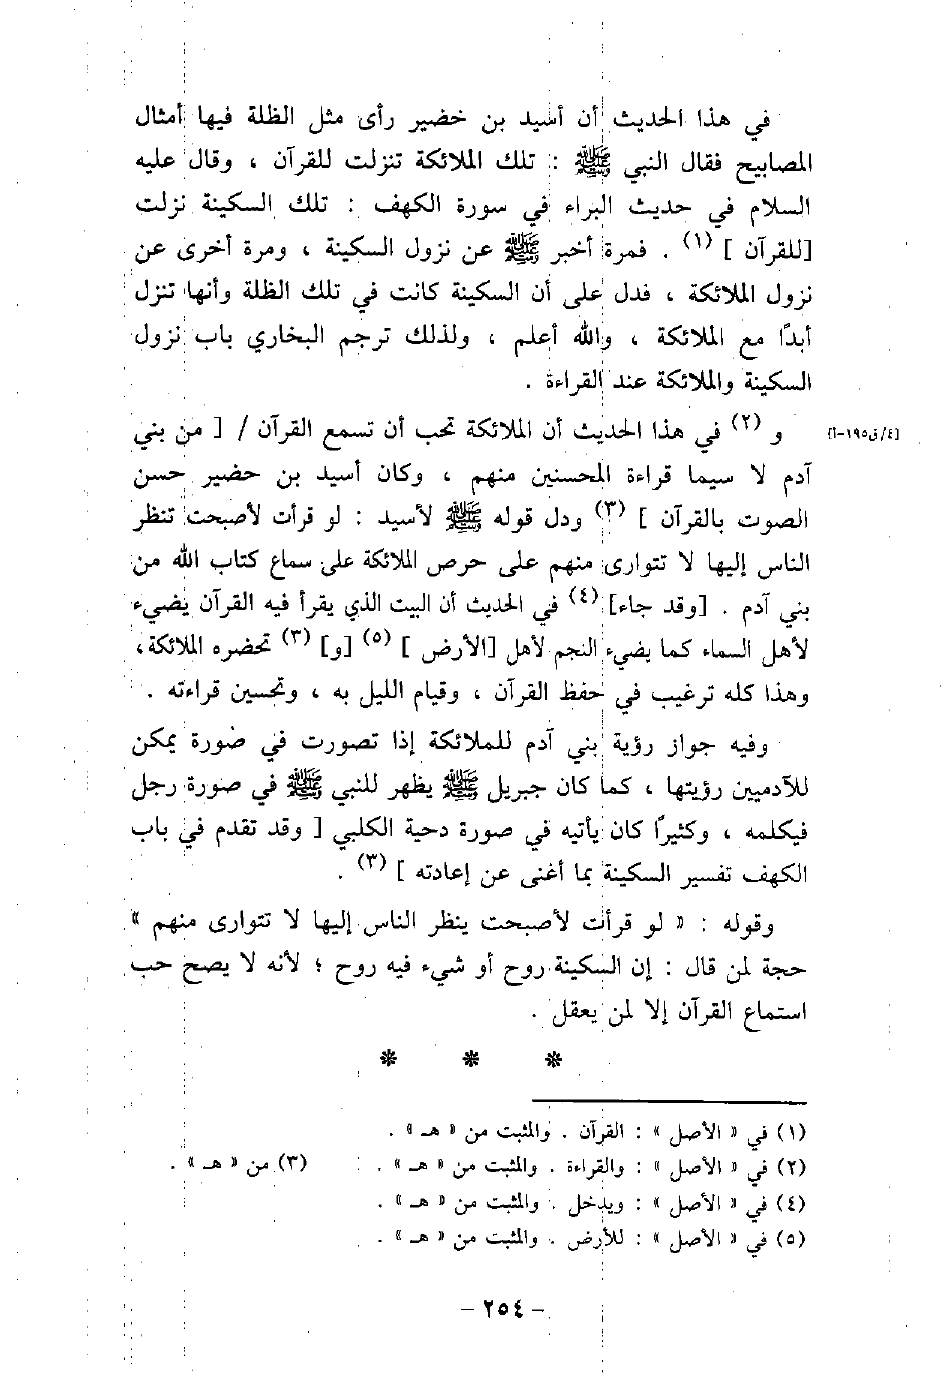 في هذا الحديث أن أسيد بن خضير رأى مثل الظلة فيها أمثال
المصابيح فقال النبي ﷺ : تلك الملائكة تنزلت للقرآن ، وقال عليه
السلام في حديث البراء في سورة الكهف : تلك السكينة نزلت
[للقرآن ] (١) . فمرة أخبر ﷺ عن نزول السكينة ، ومرة أخرى عن
نزول الملائكة ، فدل على أن السكينة كانت في تلك الظلة وأنها تنزل
أبدًا مع الملائكة ، والله أعلم ، ولذلك ترجم البخاري باب نزول
السكينة والملائكة عند القراءة .
و (٢) في هذا الحديث أن الملائكة تحب أن تسمع القرآن / [ من بني
[٤/ق١٩٥-أ]
آدم لا سيما قراءة المحسنين منهم ، وكان أسيد بن حضير حسن
الصوت بالقرآن ] (٣) ودل قوله ﷺ لأسيد : لو قرأت لأصبحت تنظر
الناس إليها لا تتوارى منهم على حرص الملائكة على سماع كتاب الله من
بني آدم . [وقد جاء] (٤) في الحديث أن البيت الذي يقرأ فيه القرآن يضيء
لأهل السماء كما يضيء النجم لأهل [الأرض ] (٥) [و] (٣) تحضره الملائكة،
وهذا كله ترغيب في حفظ القرآن ، وقيام الليل به ، وتحسين قراءته .
وفيه جواز رؤية بني آدم للملائكة إذا تصورت في صورة يمكن
للآدميين رؤيتها ، كما كان جبريل ﷺ يظهر للنبي ﷺ في صورة رجل
فيكلمه ، وكثيرًا كان يأتيه في صورة دحية الكلبي [ وقد تقدم في باب
الكهف تفسير السكينة بما أغنى عن إعادته ] (٣) .
وقوله : « لو قرأت لأصبحت ينظر الناس إليها لا تتوارى منهم »
حجة لمن قال : إن السكينة روح أو شيء فيه روح ؛ لأنه لا يصح حب
استماع القرآن إلا لمن يعقل .
* * *
(١) في « الأصل » : القرآن . والمثبت من « هـ » .
(٢) في « الأصل » : والقراءة . والمثبت من « هـ » . (٣) من « هـ » .
(٤) في « الأصل » : ويدخل . والمثبت من « هـ » .
(٥) في « الأصل » : للأرض . والمثبت من « هـ » .
- ٢٥٤ -